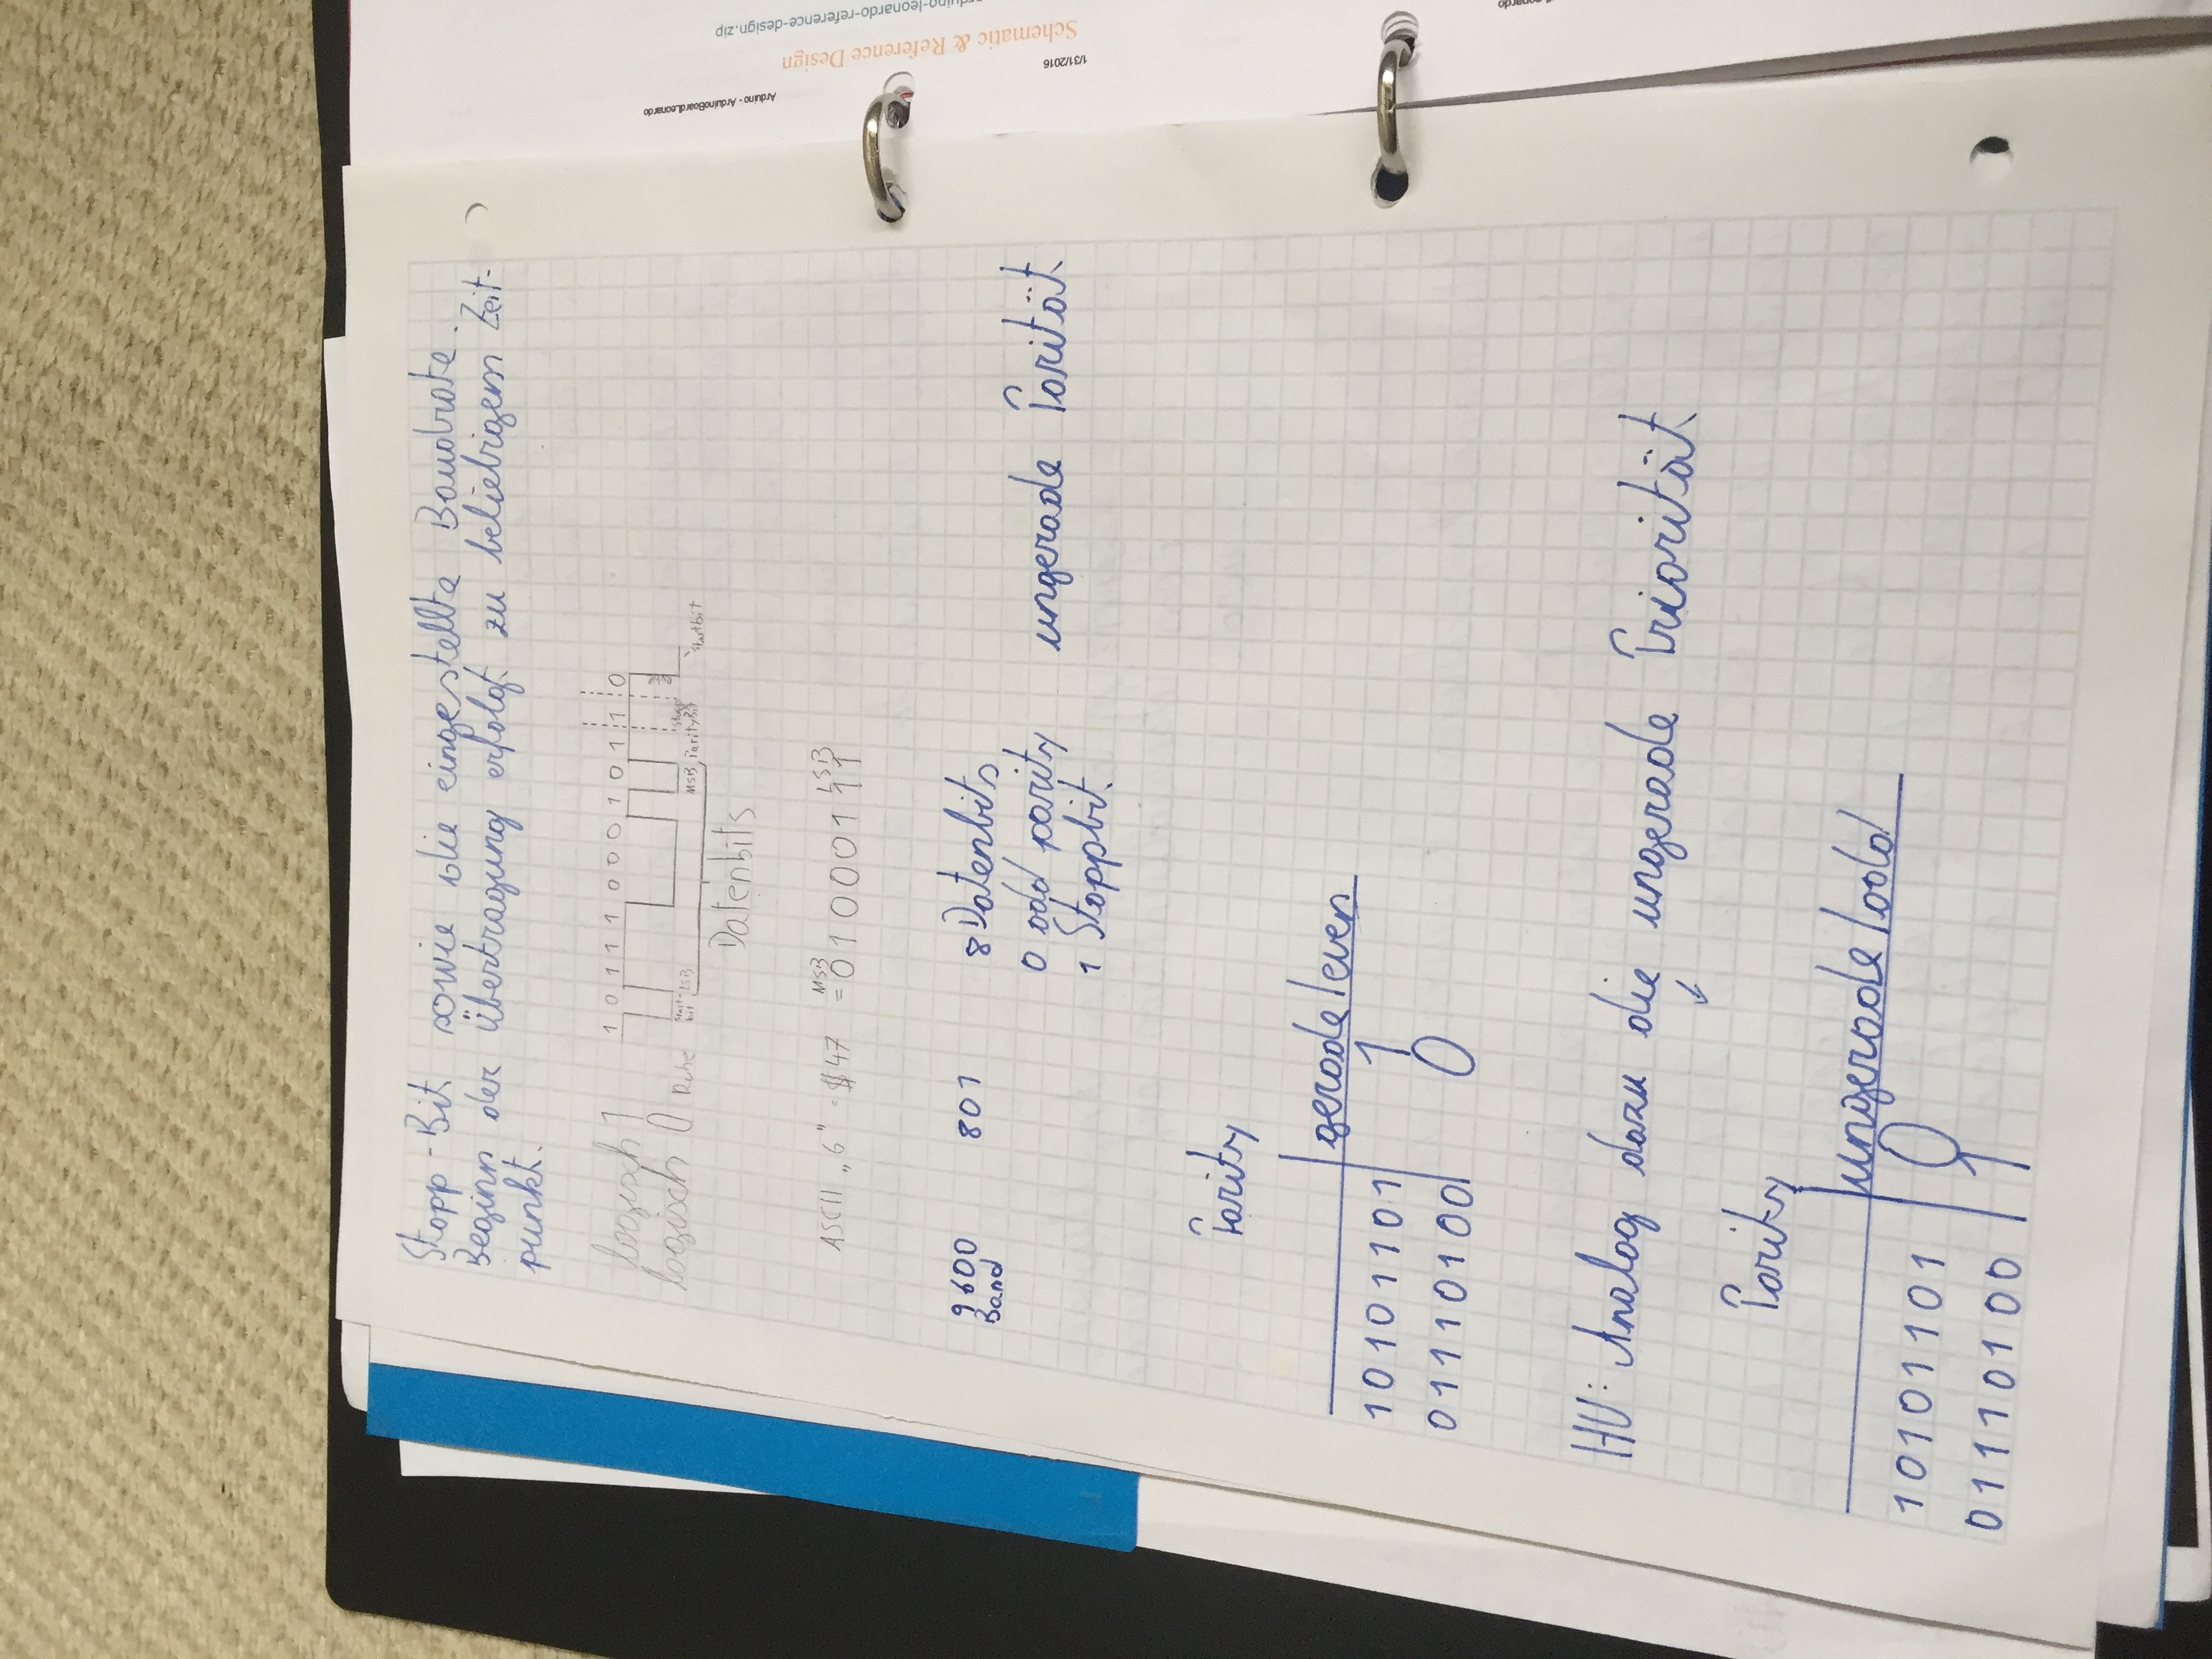 Stopp-Bit sowie die eingestellte Baudrate.
Beginn der Übertragung erfolgt zu beliebigem Zeit-
punkt.
logisch 1 1 0 1 1 1 0 0 0 1 0 1 1 0
logisch 0 Ruhe Start-bit LSB MSB Parity Bit Stopp Ruhe Startbit
Datenbits
MSB LSB
ASCII „G" = $47 = 0 1 0 0 0 1 1 1
9600 801 8 Datenbits
Baud
0 odd parity ungerade Parität
1 Stoppbit
Parity
gerade/even
10101101 1
01110100 0
HÜ: Analog dazu die ungerade Priorität
Parity
ungerade/odd
10101101 0
01110100 1
Arduino - ArduinoBoardLeonardo
1/31/2016
Schematic & Reference Design
arduino-leonardo-reference-design.zip